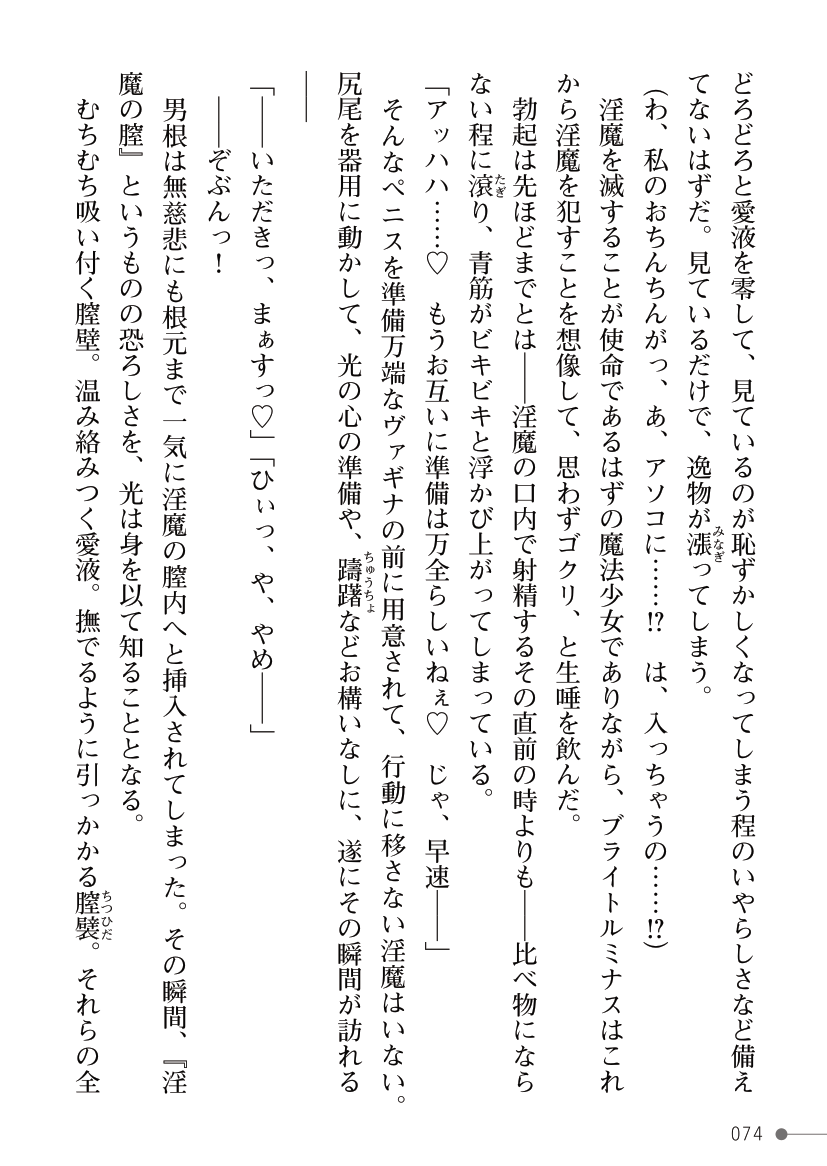 どろどろと愛液を零して、見ているのが恥ずかしくなってしまう程のいやらしさなど備え
てないはずだ。見ているだけで、逸物が漲ってしまう。
(わ、私のおちんちんがっ、あ、アソコに……!?　は、入っちゃうの……!?)
　淫魔を滅することが使命であるはずの魔法少女でありながら、ブライトルミナスはこれ
から淫魔を犯すことを想像して、思わずゴクリ、と生唾を飲んだ。
　勃起は先ほどまでとは――淫魔の口内で射精するその直前の時よりも――比べ物になら
ない程に滾り、青筋がビキビキと浮かび上がってしまっている。
「アッハハ……♡　もうお互いに準備は万全らしいねぇ♡　じゃ、早速――」
　そんなペニスを準備万端なヴァギナの前に用意されて、行動に移さない淫魔はいない。
尻尾を器用に動かして、光の心の準備や、躊躇などお構いなしに、遂にその瞬間が訪れる
――
「――いただきっ、まぁすっ♡」「ひぃっ、や、やめ――」
　――ぞぶんっ！
　男根は無慈悲にも根元まで一気に淫魔の膣内へと挿入されてしまった。その瞬間、『淫
魔の膣』というものの恐ろしさを、光は身を以て知ることとなる。
　むちむち吸い付く膣壁。温み絡みつく愛液。撫でるように引っかかる膣襞。それらの全
074